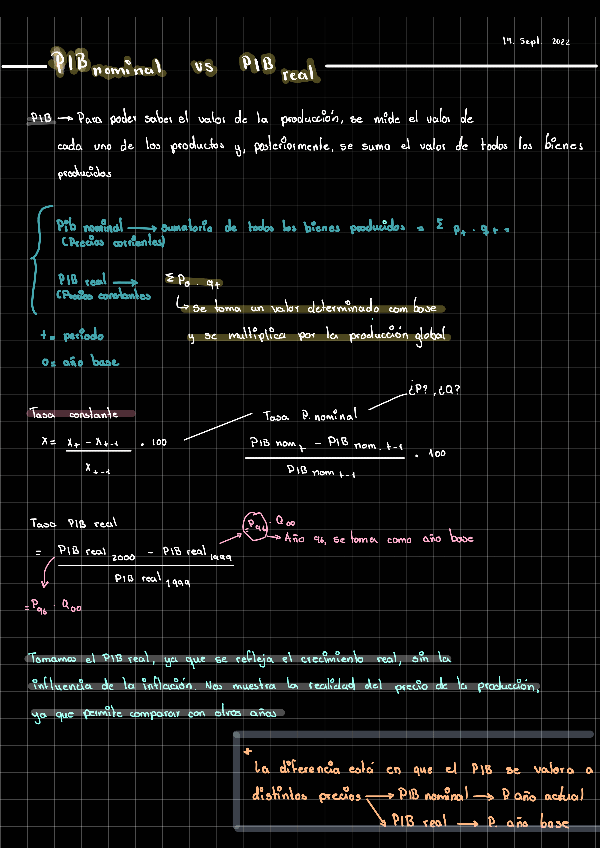 19. Sept. 2022
PIB nominal vs PIB real
PIB → Para poder saber el valor de la producción, se mide el valor de
cada uno de los productos y, posteriormente, se suma el valor de todos los bienes
producidos
Pib nominal → sumatoria de todos los bienes producidos = Σ Pt · qt =
(Precios corrientes)
PIB real → Σ Po · qt
(Precios constantes
↳ Se toma un valor determinado com base
y se multiplica por la producción global
t = periodo
0 = año base
¿P?, ¿Q?
Tasa constante
Tasa P. nominal
X = Xt - Xt-1 / Xt-1 · 100
PIB nom t - PIB nom. t-1 / PIB nom t-1 · 100
Tasa PIB real
= P96 · Q00
→ Año 96, se toma como año base
= PIB real 2000 - PIB real 1999 / PIB real 1999
= P96 · Q00
Tomamos el PIB real, ya que se refleja el crecimiento real, sin la
influencia de la inflación. Nos muestra la realidad del precio de la producción,
ya que permite comparar con otros años
+
La diferencia está en que el PIB se valora a
distintos precios → PIB nominal → P año actual
→ PIB real → P. año base